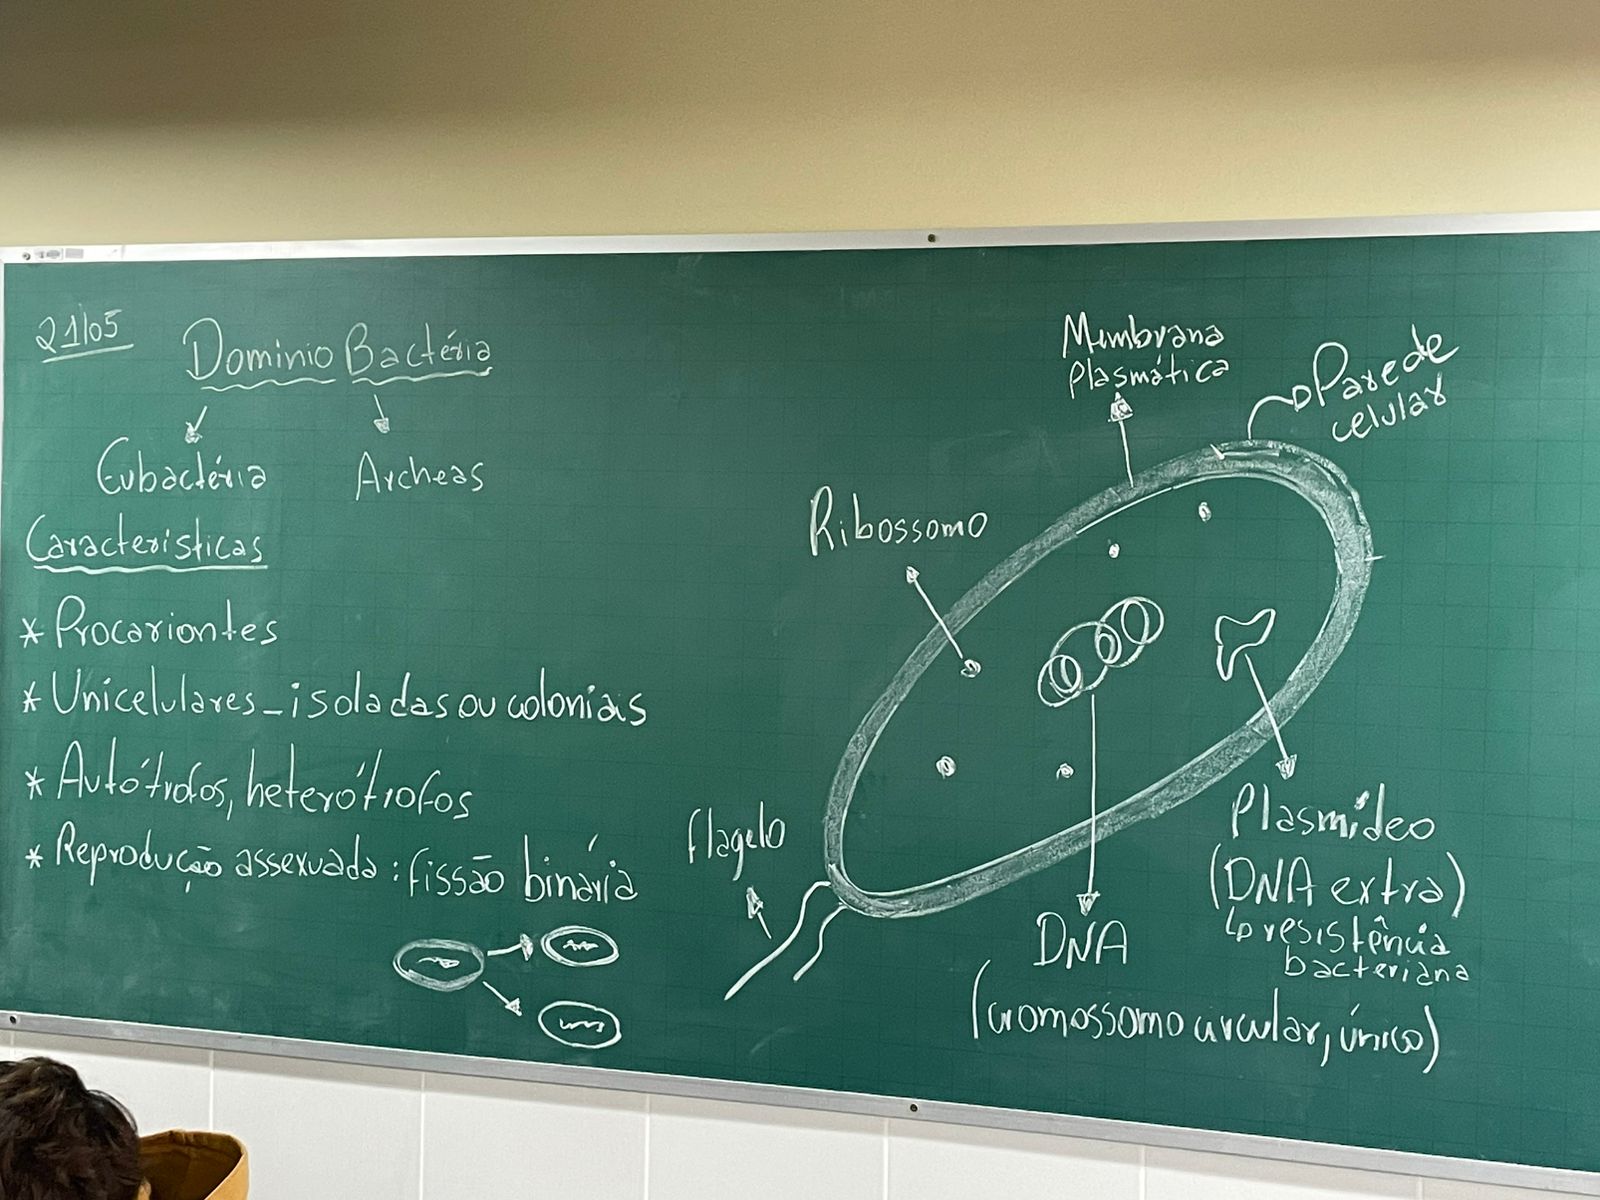 21/05
Dominio Bactéria
Eubactéria
Archeas
Características
* Procariontes
* Unicelulares - isoladas ou colonias
* Autótrofos, heterótrofos
* Reprodução assexuada: fissão binária
Membrana
plasmática
Parede
celular
Ribossomo
flagelo
DNA
(cromossomo circular, único)
Plasmídeo
(DNA extra)
↳ resistência
bacteriana